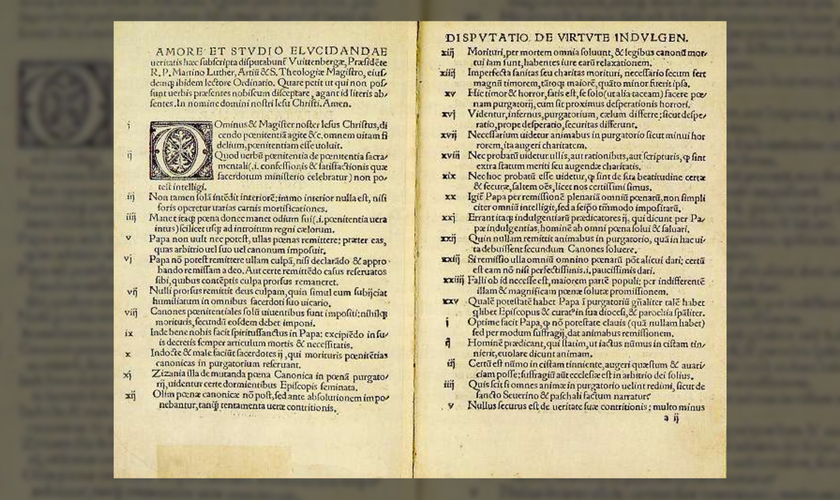 AMORE ET STVDIO ELVCIDANDAE
ueritatis hæc subscripta disputabunť Vuittenbergæ, Præsidēte
R. P. Martino Luther, Artiū & S. Theologiæ Magistro, eius-
demq̃ ibidem lectore Ordinario. Quare petit ut qui non pos-
sunt uerbis præsentes nobiscum disceptare, agant id literis ab-
sentes. In nomine domini nostri Iesu Christi, Amen.
i Dominus & Magister noster Iesus Christus, di
cendo pœnitentiā agite &c. omnem uitam fi
delium, pœnitentiam esse uoluit.
ij Quod uerbū pœnitentia de pœnitentia sacra-
mentali (.i. confessionis & satisfactionis quæ
sacerdotum ministerio celebratur) non po-
test intelligi.
iij Non tamen solā intēdit interiorē; immo interior nulla est, nisi
foris operetur uarias carnis mortificationes.
iiij Manet itaq̃ pœna donec manet odium sui (.i. pœnitentia uera
intus) scilicet usq̃ ad introitum regni cælorum.
v Papa non uult nec potest, ullas pœnas remittere; præter eas,
quas arbitrio uel suo uel canonum imposuit.
vj Papa nō potest remittere ullam culpā, nisi declarādo & appro-
bando remissam a deo. Aut certe remittēdo casus reseruatos
sibi, quibus contēptis culpa prorsus remaneret.
vij Nulli prorsus remittit deus culpam, quin simul eum subijciat
humiliatum in omnibus sacerdoti suo uicario.
viij Canones pœnitentiales solū uiuentibus sunt impositi; nihilq̃
morituris, secundū eosdem debet imponi.
ix Inde bene nobis facit spiritussanctus in Papa: excipiēdo in su-
is decretis semper articulum mortis & necessitatis.
x Indocte & male faciūt sacerdotes ij, qui morituris pœnitētias
canonicas in purgatorium reseruant.
xj Zizania illa de mutanda pœna Canonica in pœnā purgato-
rij, uidentur certe dormientibus Episcopis seminata.
xij Olim pœnæ canonicæ nō post, sed ante absolutionem impo-
nebantur, tanq̃ tentamenta ueræ contritionis.
DISPVTATIO DE VIRTVTE INDVLGEN.
xiij Morituri, per mortem omnia soluunt, & legibus canonū mor-
tui iam sunt, habentes iure earū relaxationem.
xiiij Imperfecta sanitas seu charitas morituri, necessario secum fert
magnū timorem, tātoq̃ maiorē, quāto minor fuerit ipsa.
xv Hic timor & horror, satis est, se solo (ut alia taceam) facere pœ-
nam purgatorij, cum sit proximus desperationis horrori.
xvj Videntur, infernus, purgatorium, cælum differre; sicut despe-
ratio, prope desperatio, securitas differunt.
xvij Necessarium uidetur animabus in purgatorio sicut minui hor
rorem, ita augeri charitatem.
xviij Nec probatū uidetur ullis, aut rationibus, aut scripturis, q̃ sint
extra statum meriti seu augendæ charitatis.
xix Nec hoc probatū esse uidetur, q̃ sint de sua beatitudine certæ
& securæ, saltem oēs, licet nos certissimi simus.
xx Igiť Papa per remissionē plenariā omniū pœnarū, non simpli
citer omniū intelligit, sed a seipso tm̄modo impositarū.
xxj Errant itaq̃ indulgentiarū prædicatores ij, qui dicunt per Pa-
pæ indulgentias, hominē ab omni pœna solui & saluari.
xxij Quin nullam remittit animabus in purgatorio, quā in hac ui-
ta debuissent secundum Canones soluere.
xxiij Si remissio ulla omniū omnino pœnarū pōt alicui dari; certū
est eam nō nisi perfectissimis .i. paucissimis dari.
xxiiij Falli ob id necesse est, maiorem partē populi: per indifferentē
illam & magnificam pœnæ solutæ promissionem.
xxv Qualē potestatē habet Papa ī purgatoriū gñaliter talē habet
q̃libet Episcopus & curat⁹ in sua diocesi, & parochia spāliter.
j Optime facit Papa, q̃ nō potestate clauis (quā nullam habet)
sed per modum suffragij, dat animabus remissionem.
ij Hominē prædicant, qui statim, ut iactus nūmus in cistam tin-
nierit, euolare dicunt animam.
iij Certū est nūmo in cistam tinniente, augeri quæstum & auari-
ciam posse; suffragiū aūt ecclesiæ est in arbitrio dei solius.
iiij Quis scit si omnes animæ in purgatorio uelint redimi, sicut de
sancto Seuerino & paschali factum narratur.
v Nullus securus est de ueritate suæ contritionis; multo minus
a ij